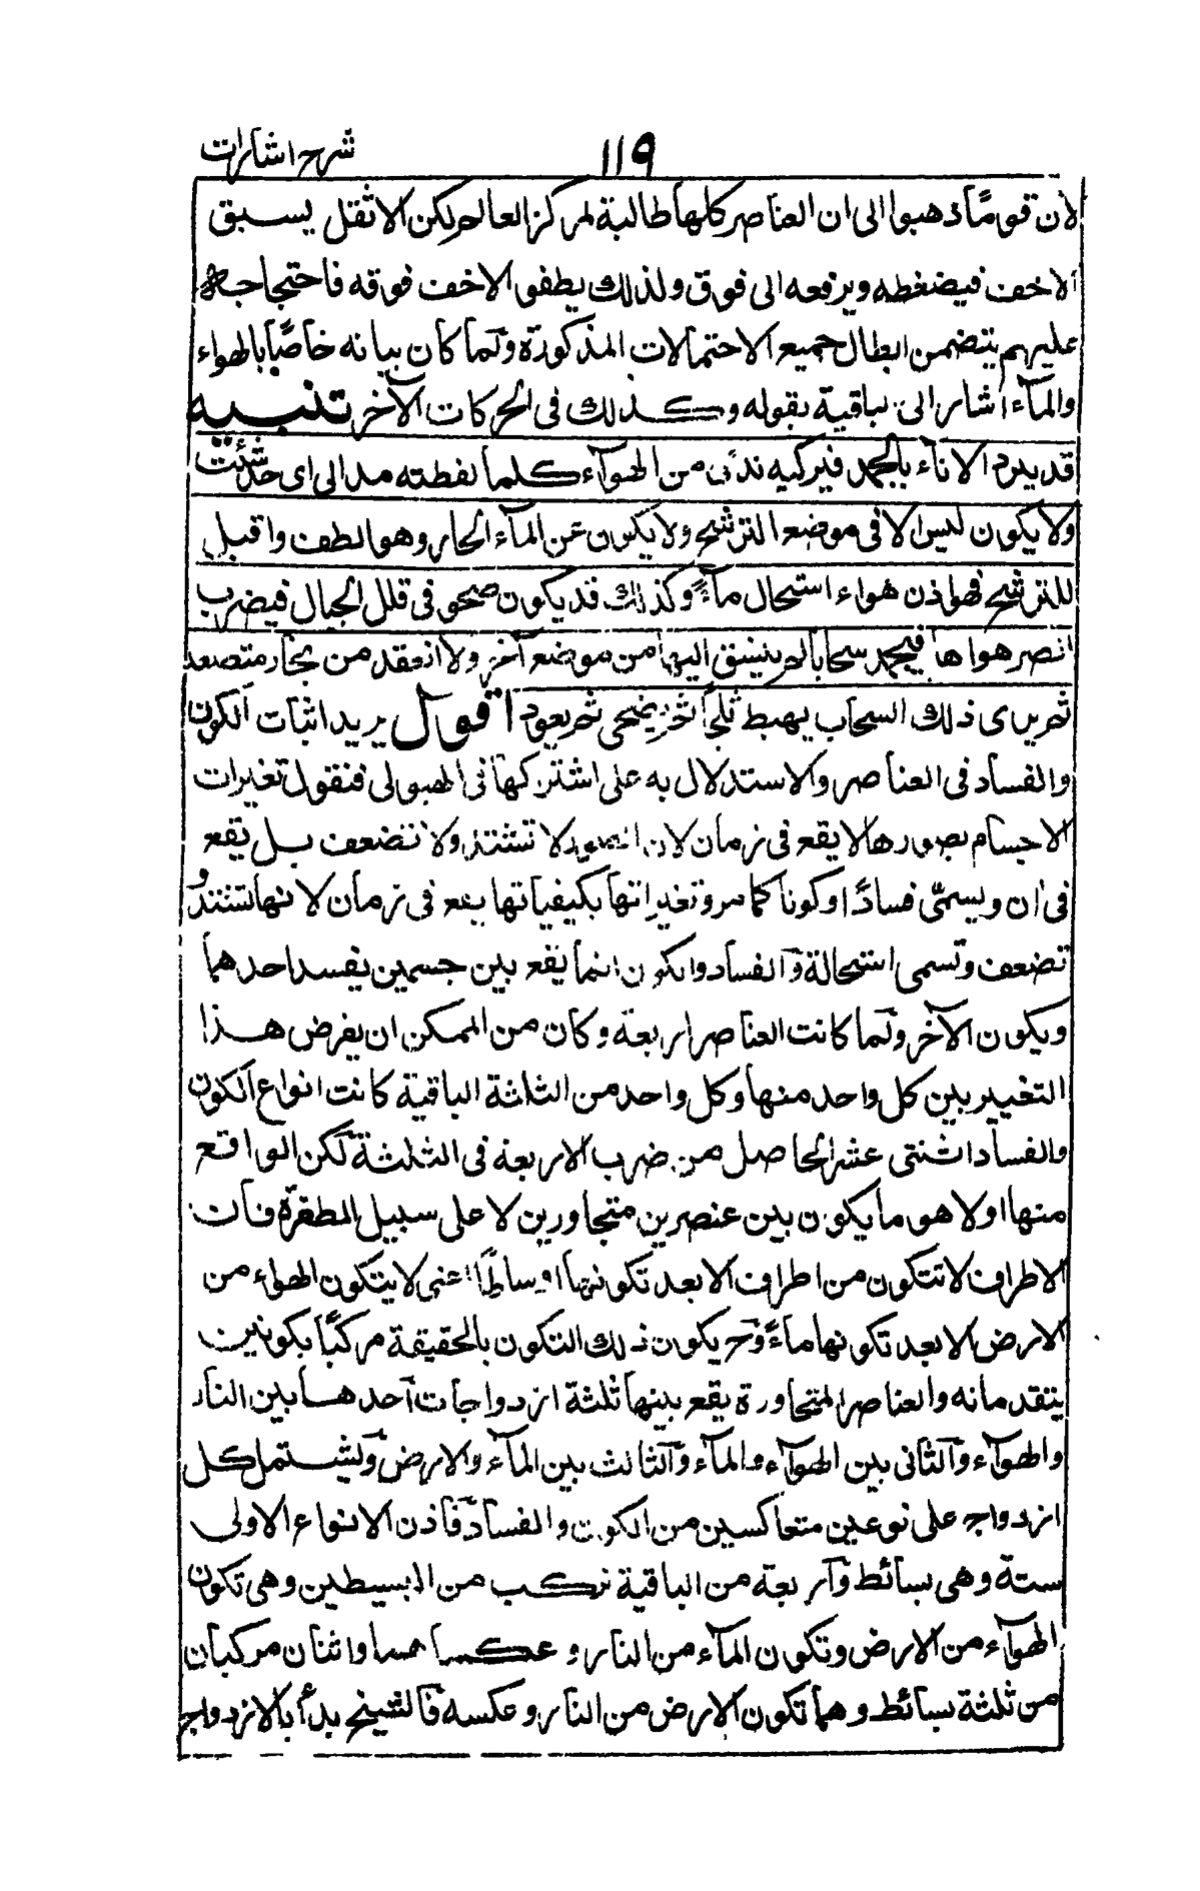 شرح اشارات
١١٩
لان قومًا ذهبوا الى ان العناصر كلها طالبة لمركز العالم لكن الاثقل يسبق
الاخف فيضغطه ويرفعه الى فوق ولذلك يطفو الاخف فوقه فاحتجاجه
عليهم يتضمن ابطال جميع الاحتمالات المذكورة ولما كان بيانه خاصًا بالهواء
والماء اشار الى باقية بقوله وكذلك فى الحركات الآخر تنبيه
قد يبرد الاناء بالجمد فيركبه ندى من الهوآء كلما لقطته مد الى اى حد شئت
ولا يكون ليس الا فى موضع الترشح ولا يكون عن المآء الحار وهو الطف واقبل
للترشح فهو اذن هواء استحال مآءً وكذلك قد يكون صحو فى قلل الجبال فيضرب
الصر هواها فيجمد سحابا لم ينسق اليها من موضع آخر ولا انعقد من بخار متصعد
ثم يرى ذلك السحاب يهبط ثلجًا ثم يضحى ثم يعود اقول يريد اثبات الكون
والفساد فى العناصر والاستدلال به على اشتراكها فى الهيولى فنقول تغيرات
الاجسام بصورها لا يقع فى زمان لان الصور لا تشتد ولا تضعف بل يقع
فى ان ويسمّى فسادًا وكونا كما مر وتغيراتها بكيفياتها يقع فى زمان لانها تشتد و
تضعف وتسمى استحالة والفساد والكون انما يقع بين جسمين يفسد احدهما
ويكون الآخر ولما كانت العناصر اربعة وكان من الممكن ان يفرض هذا
التغيير بين كل واحد منها وكل واحد من الثلثة الباقية كانت انواع الكون
والفساد اثنتى عشر الحاصل من ضرب الاربعة فى الثلثة لكن الواقع
منها اولا هو ما يكون بين عنصرين متجاورين لا على سبيل الطفرة فان
الاطراف لا تتكون من اطراف الا بعد تكونها اوساطًا اعنى لا يتكون الهواء من
الارض الا بعد تكونها ماءً وح يكون ذلك التكون بالحقيقة مركبًا بكونين
يتقدمانه والعناصر المتجاورة يقع بينها ثلثة ازدواجات احدها بين النار
والهوآء والثانى بين الهوآء والمآء والثالث بين المآء والارض ويشتمل كل
ازدواج على نوعين متعاكسين من الكون والفساد فاذن الانواع الاولى
ستة وهى بسائط واربعة من الباقية تركب من البسيطين وهى تكون
الهوآء من الارض وتكون المآء من النار وعكساهما واثنان مركبان
من ثلثة بسائط وهما تكون الارض من النار وعكسه فالشيخ بدأ بالازدواج